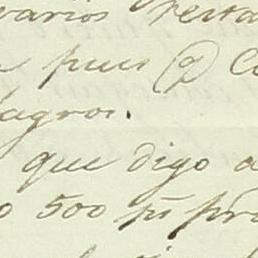 varios resta
pues q
lagros.
que digo a
o 500 ps pra